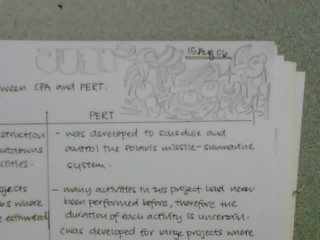 15 Aug 06
ween CPA and PERT.
PERT
struction
- was developed to schedule and
control the Polaris missile-submarine
system.
ojects
- many activities in this project had never
s where
been performed before, therefore the
e estimated
duration of each activity is uncertain.
(was developed for large projects where